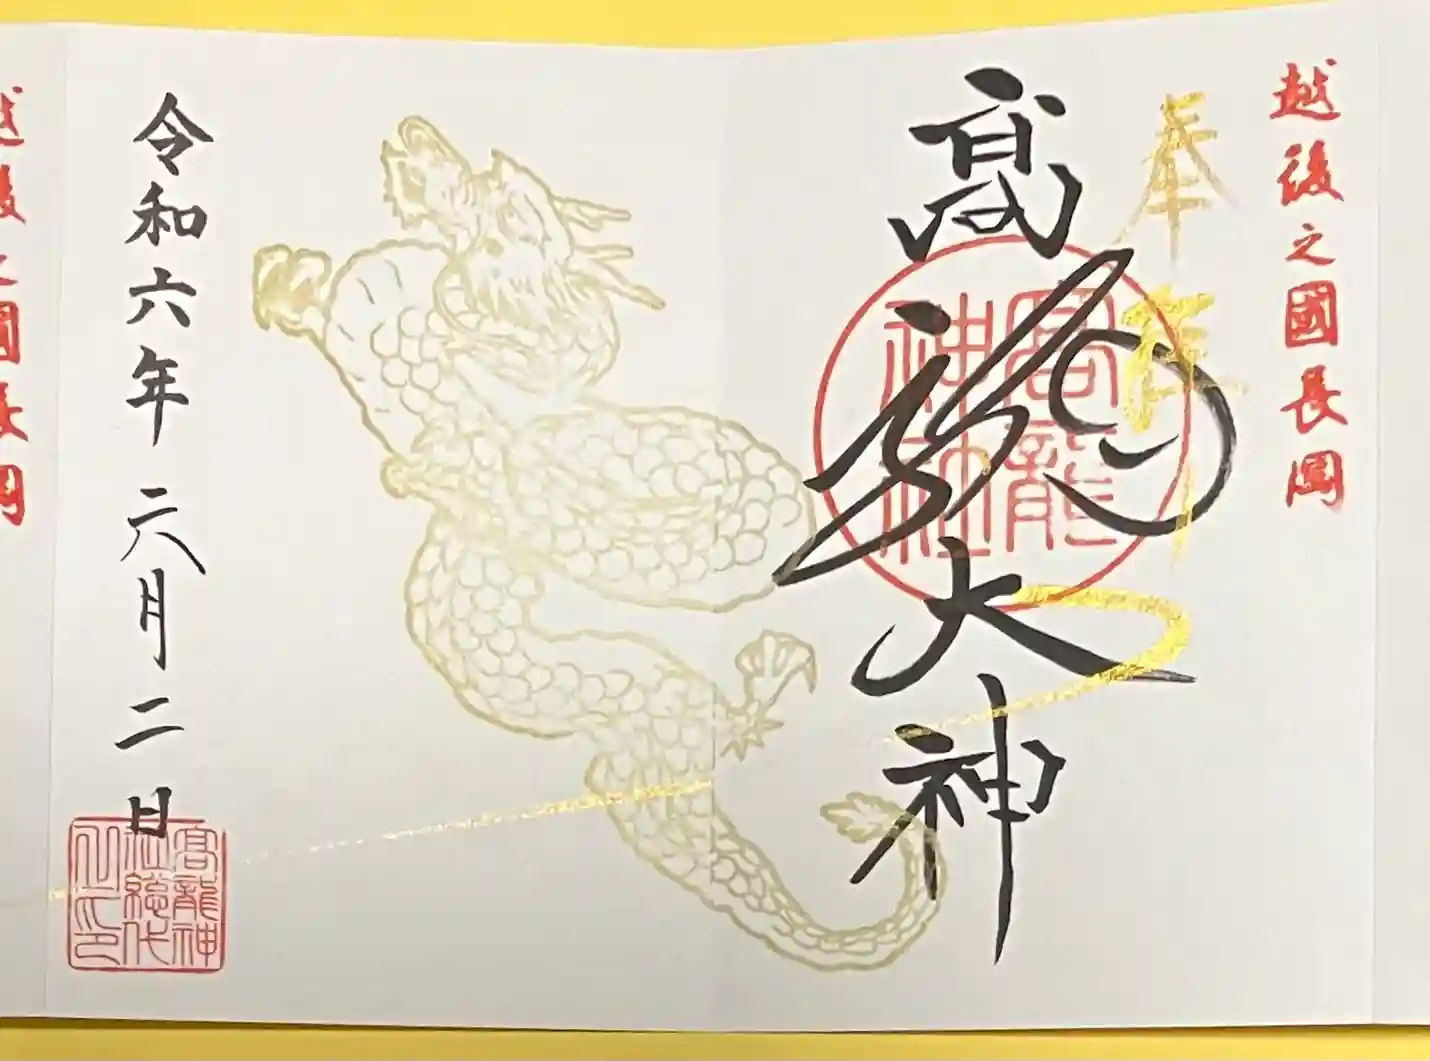 越後之國長岡
奉拝
高龍大神
高龍
神社
令和六年 六月二日
高龍神
社総代
之印
越後之國長岡